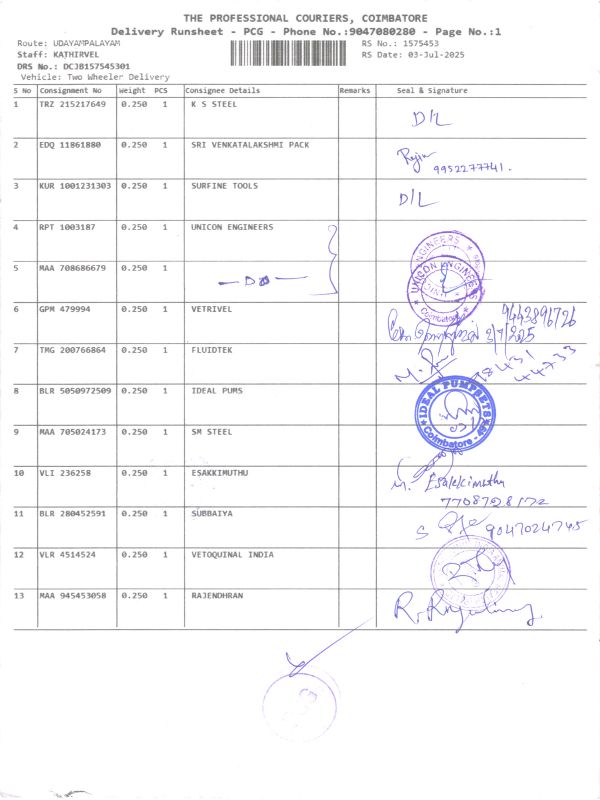 THE PROFESSIONAL COURIERS, COIMBATORE
Delivery Runsheet - PCG - Phone No.:9047080280 - Page No.:1
Route: UDAYAMPALAYAM RS No.: 1575453
Staff: KATHIRVEL RS Date: 03-Jul-2025
DRS No.: DCJB157545301
Vehicle: Two Wheeler Delivery
S No Consignment No Weight PCS Consignee Details Remarks Seal & Signature
1 TRZ 215217649 0.250 1 K S STEEL D/L
2 EDQ 11861880 0.250 1 SRI VENKATALAKSHMI PACK
9952277741.
3 KUR 1001231303 0.250 1 SURFINE TOOLS D/L
4 RPT 1003187 0.250 1 UNICON ENGINEERS
UNICON ENGINEERS Coimbatore
5 MAA 708686679 0.250 1 — Do —
6 GPM 479994 0.250 1 VETRIVEL 9443896726
3/7/2025
7 TMG 200766864 0.250 1 FLUIDTEK 98431
44733
8 BLR 5050972509 0.250 1 IDEAL PUMS
IDEAL PUMPSETS Coimbatore - 49
9 MAA 705024173 0.250 1 SM STEEL
10 VLI 236258 0.250 1 ESAKKIMUTHU M. Esakkimuthu
7708728172
11 BLR 280452591 0.250 1 SUBBAIYA S 9047024745
12 VLR 4514524 0.250 1 VETOQUINAL INDIA
13 MAA 945453058 0.250 1 RAJENDHRAN